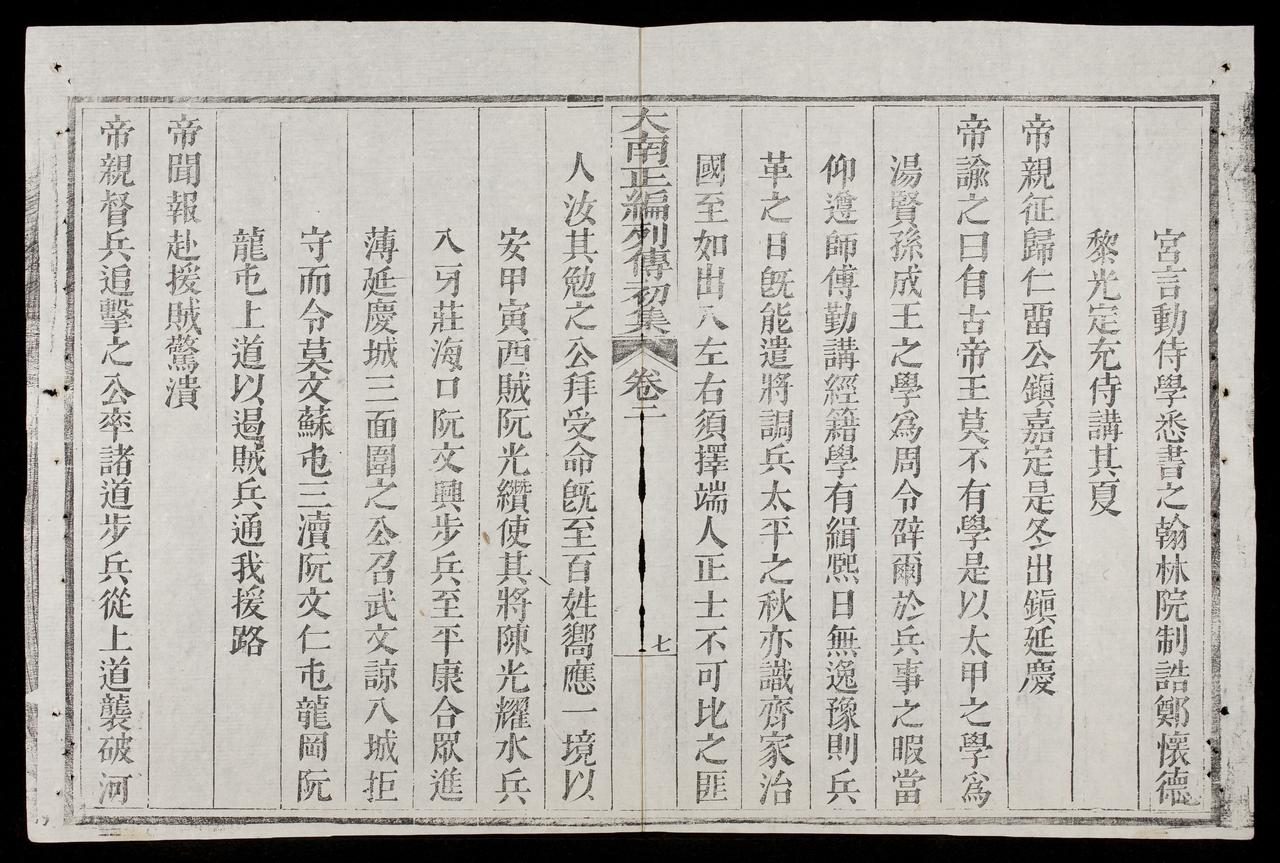 宮言動侍學悉書之翰林院制誥鄭懷德
黎光定充侍講其夏
帝親征歸仁畱公鎭嘉定是冬出鎭延慶
帝諭之曰自古帝王莫不有學是以太甲之學爲
湯賢孫成王之學爲周令辟爾於兵事之暇當
仰遵師傅勤講經籍學有緝熙日無逸豫則兵
革之日旣能遣將調兵太平之秋亦識齊家治
國至如出入左右須擇端人正士不可比之匪
大南正編列傳初集 卷二 七
人汝其勉之公拜受命旣至百姓嚮應一境以
安甲寅西賊阮光纘使其將陳光耀水兵
入牙莊海口阮文興步兵至平康合眾進
薄延慶城三面圍之公召武文諒入城拒
守而令莫文蘇屯三瀆阮文仁屯龍岡阮
龍屯上道以遏賊兵通我援路
帝聞報赴援賊驚潰
帝親督兵追擊之公率諸道步兵從上道襲破河